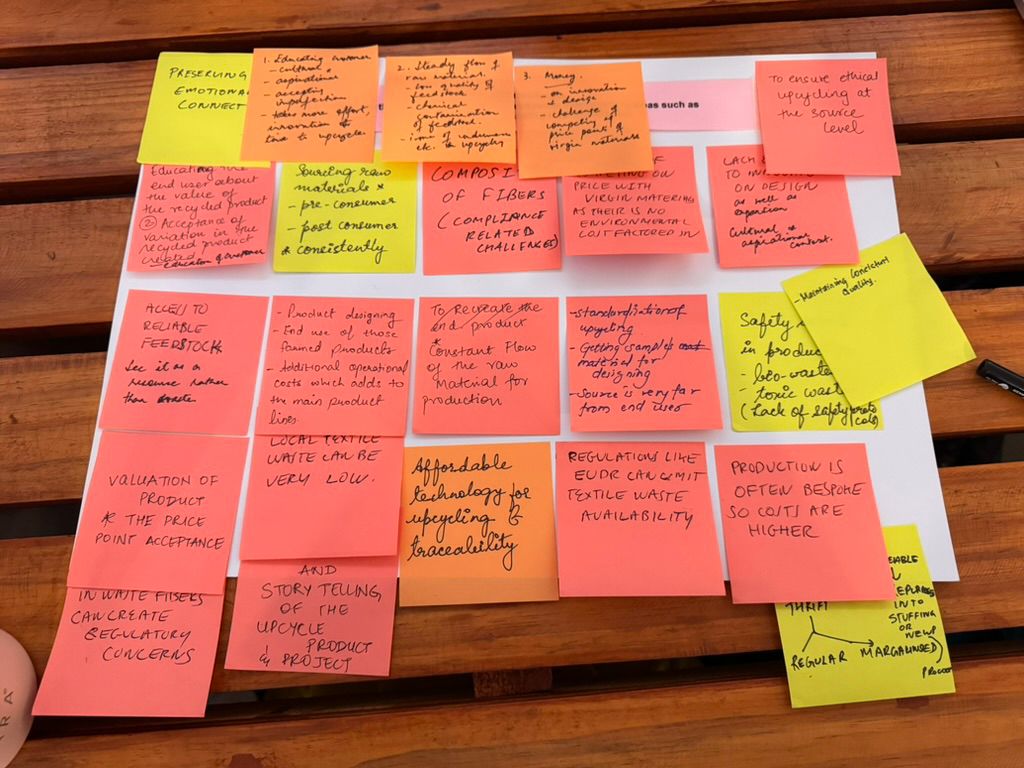 PRESERVING
EMOTIONAL
CONNECT
1. Educating customer
- cultural &
- aspirational
- accepting
imperfection
- takes more effort,
innovation &
time to upcycle
2. Steady flow of
raw material.
- low quality of
feedstock
- chemical
contamination
of feedstock
etc. to upcycle
3. Money.
- on innovation
& design
- challenge of
competing at
price point of
virgin materials
as such as
To ensure ethical
upcycling at
the source
level
Educating the
end user about
the value of
the recycled product
② Acceptance of
variation in the
recycled product
created
- Education of customer
Sourcing raw
materials *
- pre-consumer
- post consumer
* consistently
OF FIBERS
(COMPLIANCE
RELATED
CHALLENGES)
PRICE WITH
VIRGIN MATERIALS
AS THEIR IS NO
ENVIRONMENTAL
COST FACTORED IN
LACK
TO
ON DESIGN
as well as
Cultural &
aspirational
context.
- Maintaining consistent
quality.
ACCESS TO
RELIABLE
FEEDSTOCK
See it as a
resource rather
than waste
- Product designing
- End use of those
formed products
- Additional operational
costs which adds to
the main product
lines.
To recreate the
end product
* Constant Flow
of the raw
Material for
production
- standardization of
upcycling
- Getting samples
material for
designing
- Source is very far
from end user
Safety
in produc
- bio-waste
- toxic waste
(Lack of safety proto
cols)
VALUATION OF
PRODUCT
& THE PRICE
POINT ACCEPTANCE
LOCAL TEXTILE
WASTE CAN BE
VERY LOW.
Affordable
technology for
upcycling &
traceability
REGULATIONS LIKE
EUDR CAN LIMIT
TEXTILE WASTE
AVAILABILITY
PRODUCTION IS
OFTEN BESPOKE
SO COSTS ARE
HIGHER
IN WASTE FIBERS
CAN CREATE
REGULATORY
CONCERNS
AND
STORY TELLING
OF THE
UPCYCLE PRODUCT
& PROJECT
INTO
STUFFING
OR
NEW
THRIFT
REGULAR MARGALINISED)